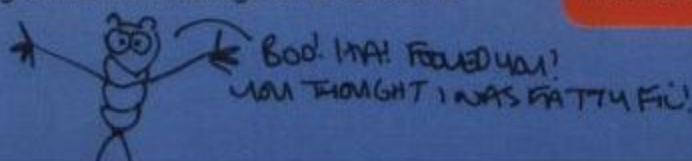 BOO! HA! FOOLED YOU!
YOU THOUGHT I WAS FATTY FIL!